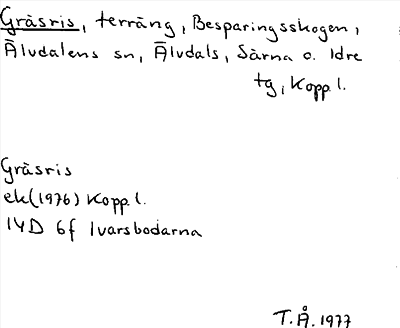 Gråsris, terräng, Besparingsskogen,
Älvdalens sn, Älvdals, Särna o. Idre
tg, Kopp l.
Gråsris
ek (1976) Kopp l.
14D 6f Ivarsbodarna
T.Å. 1977